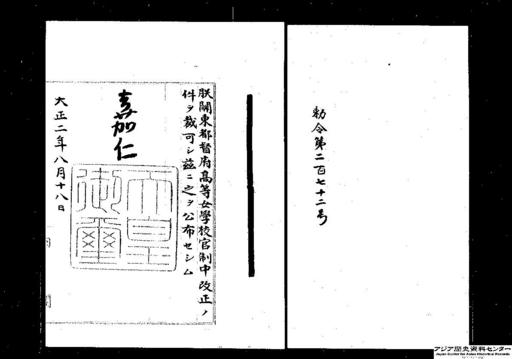 勅令第二百七十二号
朕関東都督府高等女学校官制中改正ノ
件ヲ裁可シ茲ニ之ヲ公布セシム
嘉仁
天皇
御璽
大正二年八月十八日
アジア歴史資料センター
Japan Center for Asian Historical Records